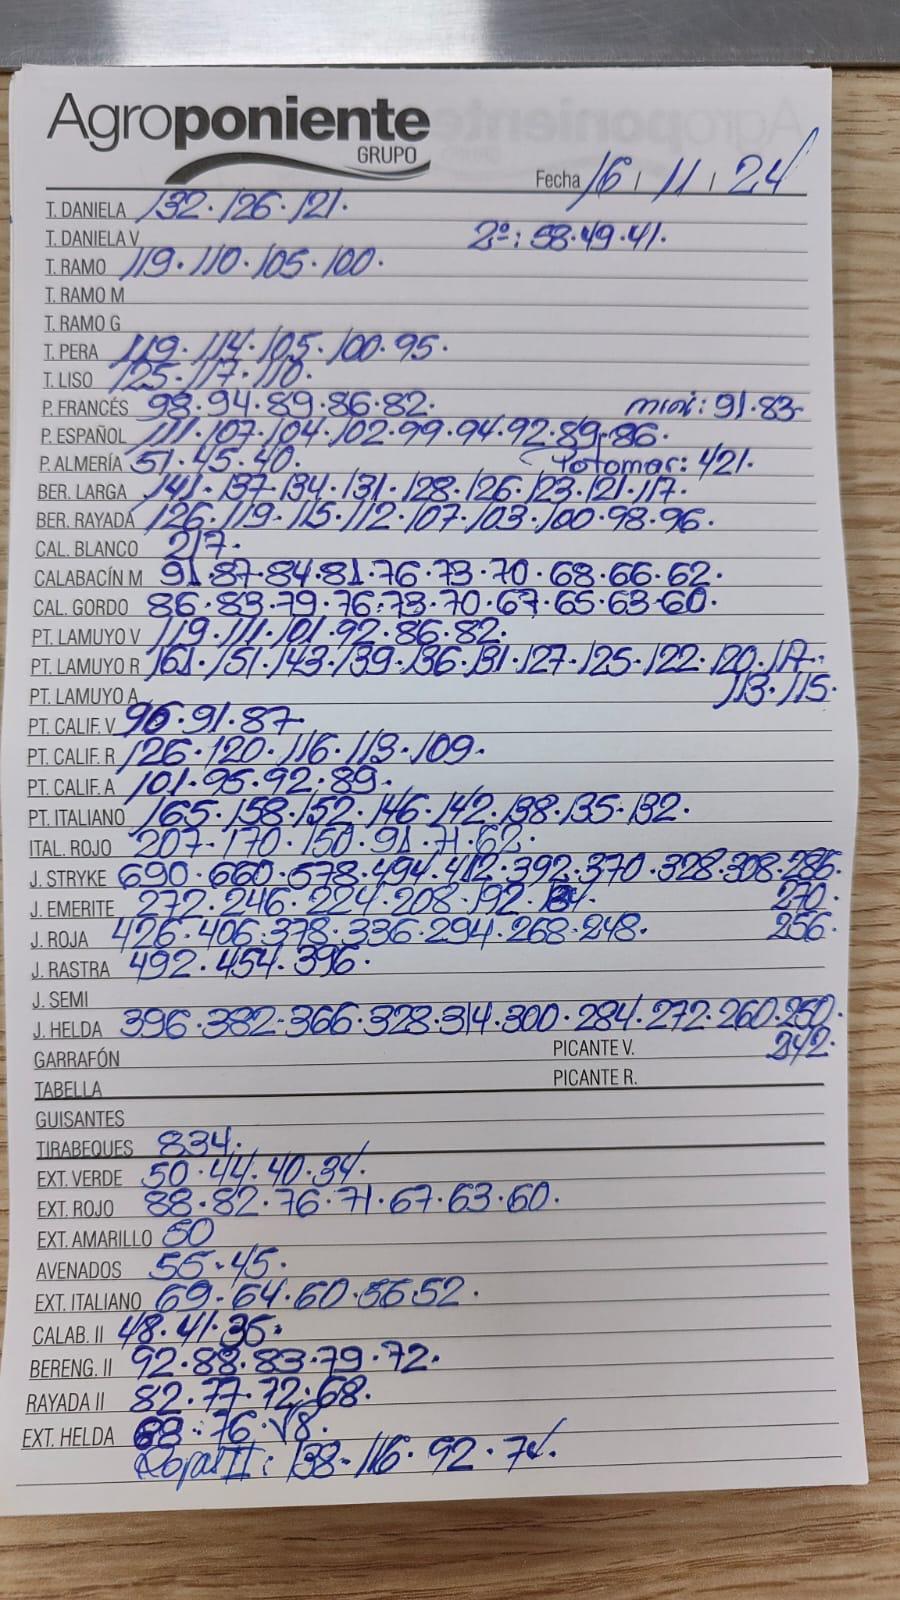 Agroponiente
GRUPO
Fecha 16 / 11 / 24
T. DANIELA 132. 126. 121.
T. DANIELA V 2º: 58.49.41.
T. RAMO 119. 110. 105. 100.
T. RAMO M
T. RAMO G
T. PERA 119. 114. 105. 100. 95.
T. LISO 125. 117. 110.
P. FRANCÉS 98. 94. 89. 86. 82. mini: 91. 83
P. ESPAÑOL 111. 107. 104. 102. 99. 94. 92. 89. 86.
P. ALMERÍA 51. 45. 40. Potomar: 421.
BER. LARGA 141. 137. 134. 131. 128. 126. 123. 121. 117.
BER. RAYADA 126. 119. 115. 112. 107. 103. 100. 98. 96.
CAL. BLANCO 217.
CALABACÍN M 91. 87. 84. 81. 76. 73. 70. 68. 66. 62.
CAL. GORDO 86. 83. 79. 76. 73. 70. 67. 65. 63. 60.
PT. LAMUYO V 119. 111. 101. 92. 86. 82.
PT. LAMUYO R 161. 151. 143. 139. 136. 131. 127. 125. 122. 120. 117.
PT. LAMUYO A 113. 115.
PT. CALIF. V 96. 91. 87
PT. CALIF. R 126. 120. 116. 113. 109.
PT. CALIF. A 101. 95. 92. 89.
PT. ITALIANO 165. 158. 152. 146. 142. 138. 135. 132.
ITAL. ROJO 207. 170. 150. 91. 71. 62.
J. STRYKE 690. 660. 578. 494. 412. 392. 370. 328. 308. 286.
J. EMERITE 272. 246. 224. 208. 192. 270.
J. ROJA 426. 406. 378. 336. 294. 268. 248. 256.
J. RASTRA 492. 454. 396.
J. SEMI
J. HELDA 396. 382. 366. 328. 314. 300. 284. 272. 260. 250.
GARRAFÓN PICANTE V. 242.
TABELLA PICANTE R.
GUISANTES
TIRABEQUES 834.
EXT. VERDE 50. 44. 40. 34.
EXT. ROJO 88. 82. 76. 71. 67. 63. 60.
EXT. AMARILLO 50
AVENADOS 55. 45.
EXT. ITALIANO 69. 64. 60. 56 52.
CALAB. II 48. 41. 35.
BERENG. II 92. 88. 83. 79. 72.
RAYADA II 82. 77. 72. 68.
EXT. HELDA 76.
Rojas II: 138. 116. 92. 74.